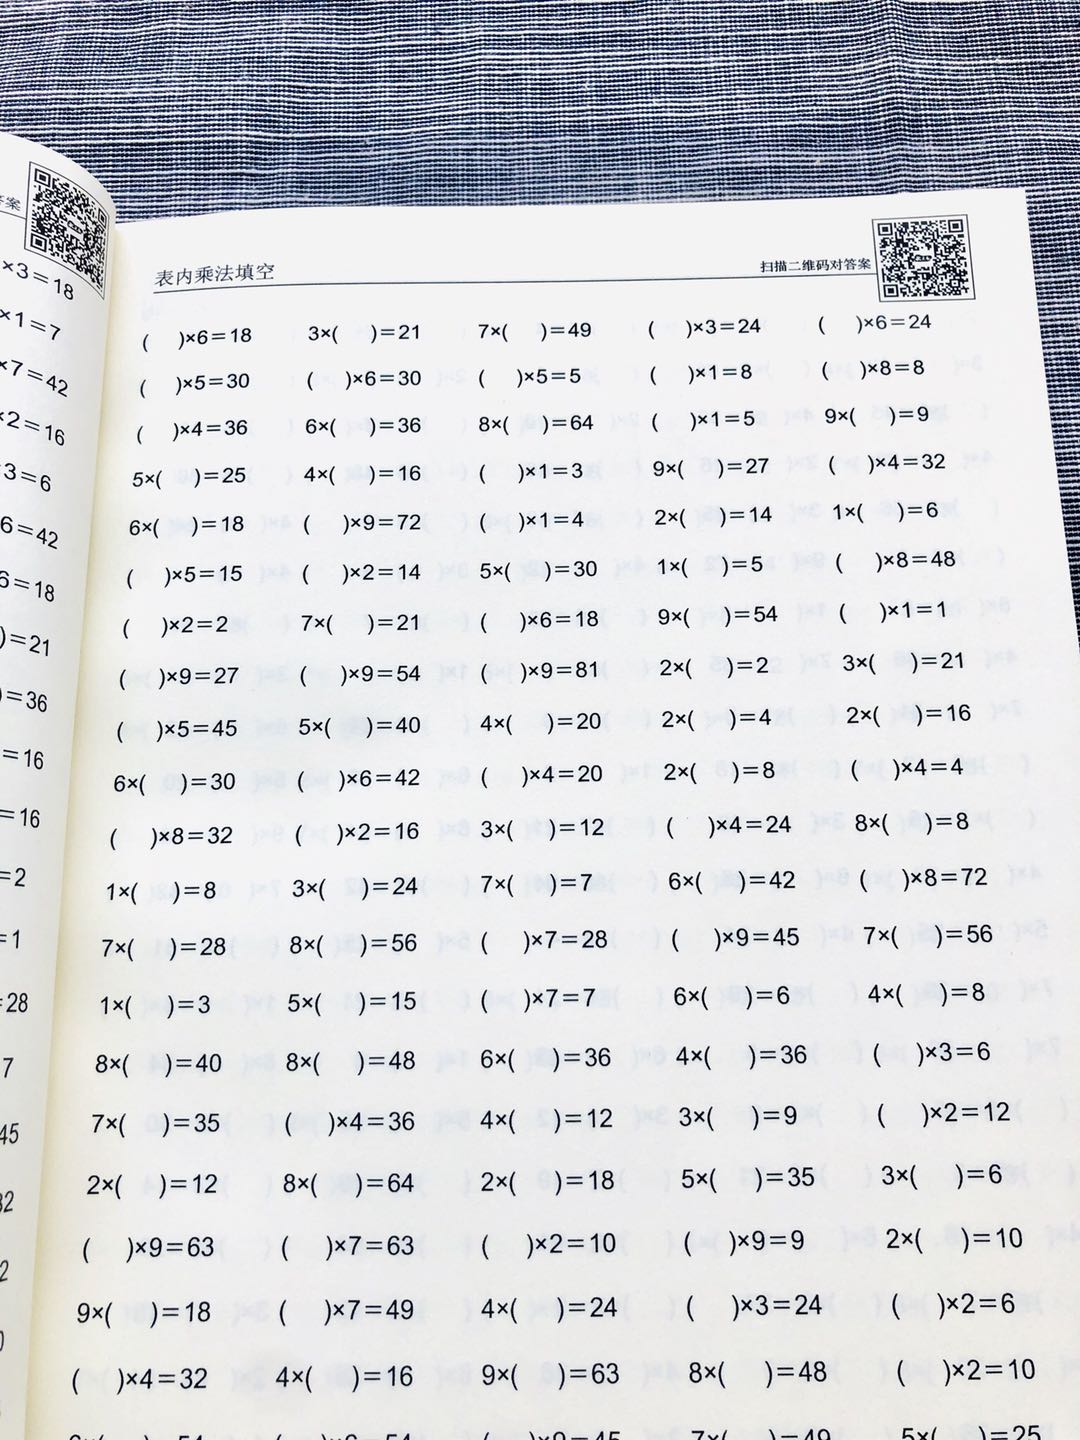 答案
×3=18
×1=7
×7=42
×2=16
3=6
6=42
6=18
)=21
)=36
=16
=16
=2
=1
=28
7
45
32
2
表内乘法填空 扫描二维码对答案
( )×6=18 3×( )=21 7×( )=49 ( )×3=24 ( )×6=24
( )×5=30 ( )×6=30 ( )×5=5 ( )×1=8 ( )×8=8
( )×4=36 6×( )=36 8×( )=64 ( )×1=5 9×( )=9
5×( )=25 4×( )=16 ( )×1=3 9×( )=27 ( )×4=32
6×( )=18 ( )×9=72 ( )×1=4 2×( )=14 1×( )=6
( )×5=15 ( )×2=14 5×( )=30 1×( )=5 ( )×8=48
( )×2=2 7×( )=21 ( )×6=18 9×( )=54 ( )×1=1
( )×9=27 ( )×9=54 ( )×9=81 2×( )=2 3×( )=21
( )×5=45 5×( )=40 4×( )=20 2×( )=4 2×( )=16
6×( )=30 ( )×6=42 ( )×4=20 2×( )=8 ( )×4=4
( )×8=32 ( )×2=16 3×( )=12 ( )×4=24 8×( )=8
1×( )=8 3×( )=24 7×( )=7 6×( )=42 ( )×8=72
7×( )=28 8×( )=56 ( )×7=28 ( )×9=45 7×( )=56
1×( )=3 5×( )=15 ( )×7=7 6×( )=6 4×( )=8
8×( )=40 8×( )=48 6×( )=36 4×( )=36 ( )×3=6
7×( )=35 ( )×4=36 4×( )=12 3×( )=9 ( )×2=12
2×( )=12 8×( )=64 2×( )=18 5×( )=35 3×( )=6
( )×9=63 ( )×7=63 ( )×2=10 ( )×9=9 2×( )=10
9×( )=18 ( )×7=49 4×( )=24 ( )×3=24 ( )×2=6
( )×4=32 4×( )=16 9×( )=63 8×( )=48 ( )×2=10
6×( )=54 ( )×6=54 ( )×9=45 7×( )=49 5×( )=25